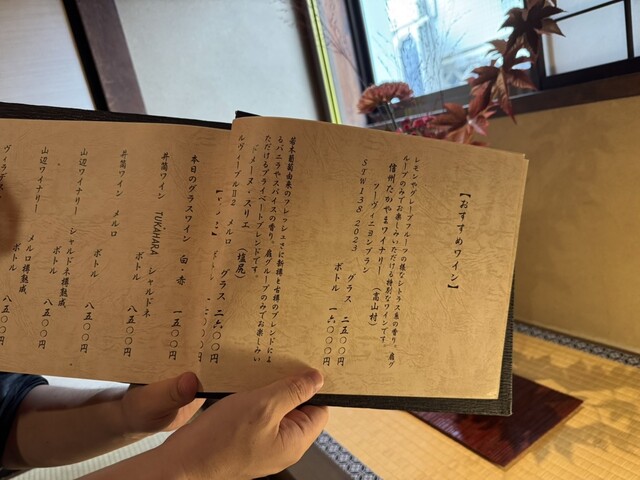 【おすすめワイン】
レモンやグレープフルーツの様なシトラス系の香り。扇グ
ループのみでお楽しみいただける特別なワインです。
信州たかやまワイナリー（高山村）
ソーヴィニヨンブラン
STW138 2023
グラス 二五〇〇円
ボトル 一六〇〇〇円
若木葡萄由来のフレッシュさに新樽と古樽のブレンドによ
るバニラやスパイスの香り。扇グループのみでお楽しみい
ただけるプライベートブレンドです。
ドメーヌ・スリエ（塩尻）
ルヴィーブルⅡ2 メルロ
グラス 二六〇〇円
本日のグラスワイン 白・赤
一五〇〇円
井筒ワイン TUKAHARA シャルドネ
ボトル 八五〇〇円
井筒ワイン メルロ
ボトル 八五〇〇円
山辺ワイナリー シャルドネ樽熟成
ボトル 八五〇〇円
山辺ワイナリー メルロ樽熟成
ボトル 八五〇〇円